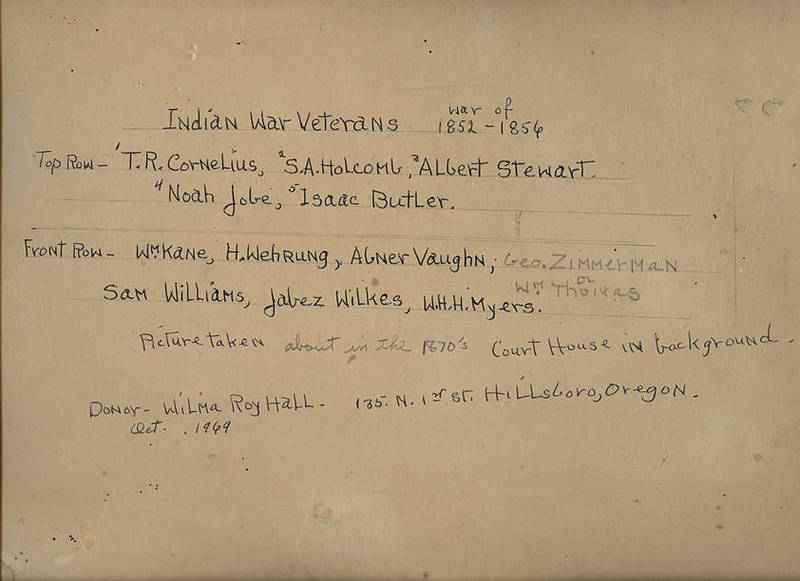 Indian War Veterans war of 1852-1856
Top Row- 1 T.R. Cornelius, 2 S.A. Holcomb, 3 Albert Stewart.
4 Noah Jobe, 5 Isaac Butler.
Front Row- Wm Kane, H. Wehrung, Abner Vaughn, Geo. Zimmerman
or Wm Thomas
Sam Williams, Jabez Wilkes, W.H.H. Myers.
Picture taken about in the 1870's Court House in background.
Donor- Wilma Roy Hall- 135. N. 1st St. Hillsboro, Oregon.
Oct. 1969